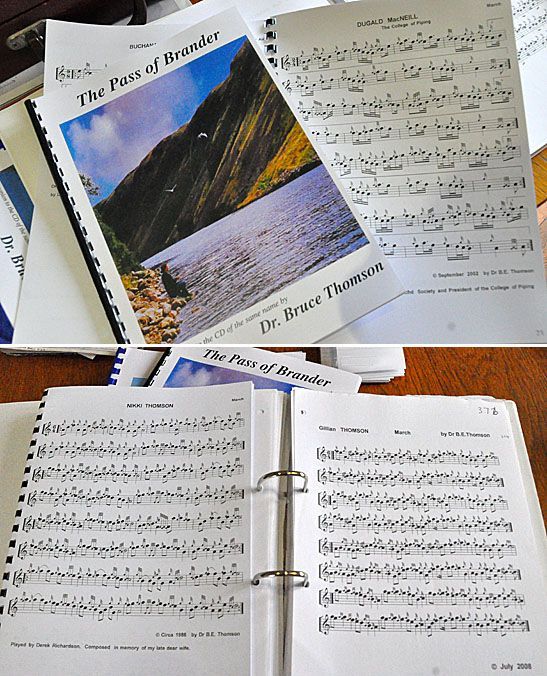 BUCHAN
The Pass of Brander
the CD of the same name by
Dr. Bruce Thomson
Dr. B
DUGALD MacNEILL
The College of Piping
March
© September 2002 by Dr B.E. Thomson
Society and President of the College of Piping
The Pass of Brander
NIKKI THOMSON
March
© Circa 1986 by Dr B.E. Thomson
Played by Derek Richardson. Composed in memory of my late dear wife.
378
Gillian THOMSON March by Dr B.E.Thomson
© July 2008